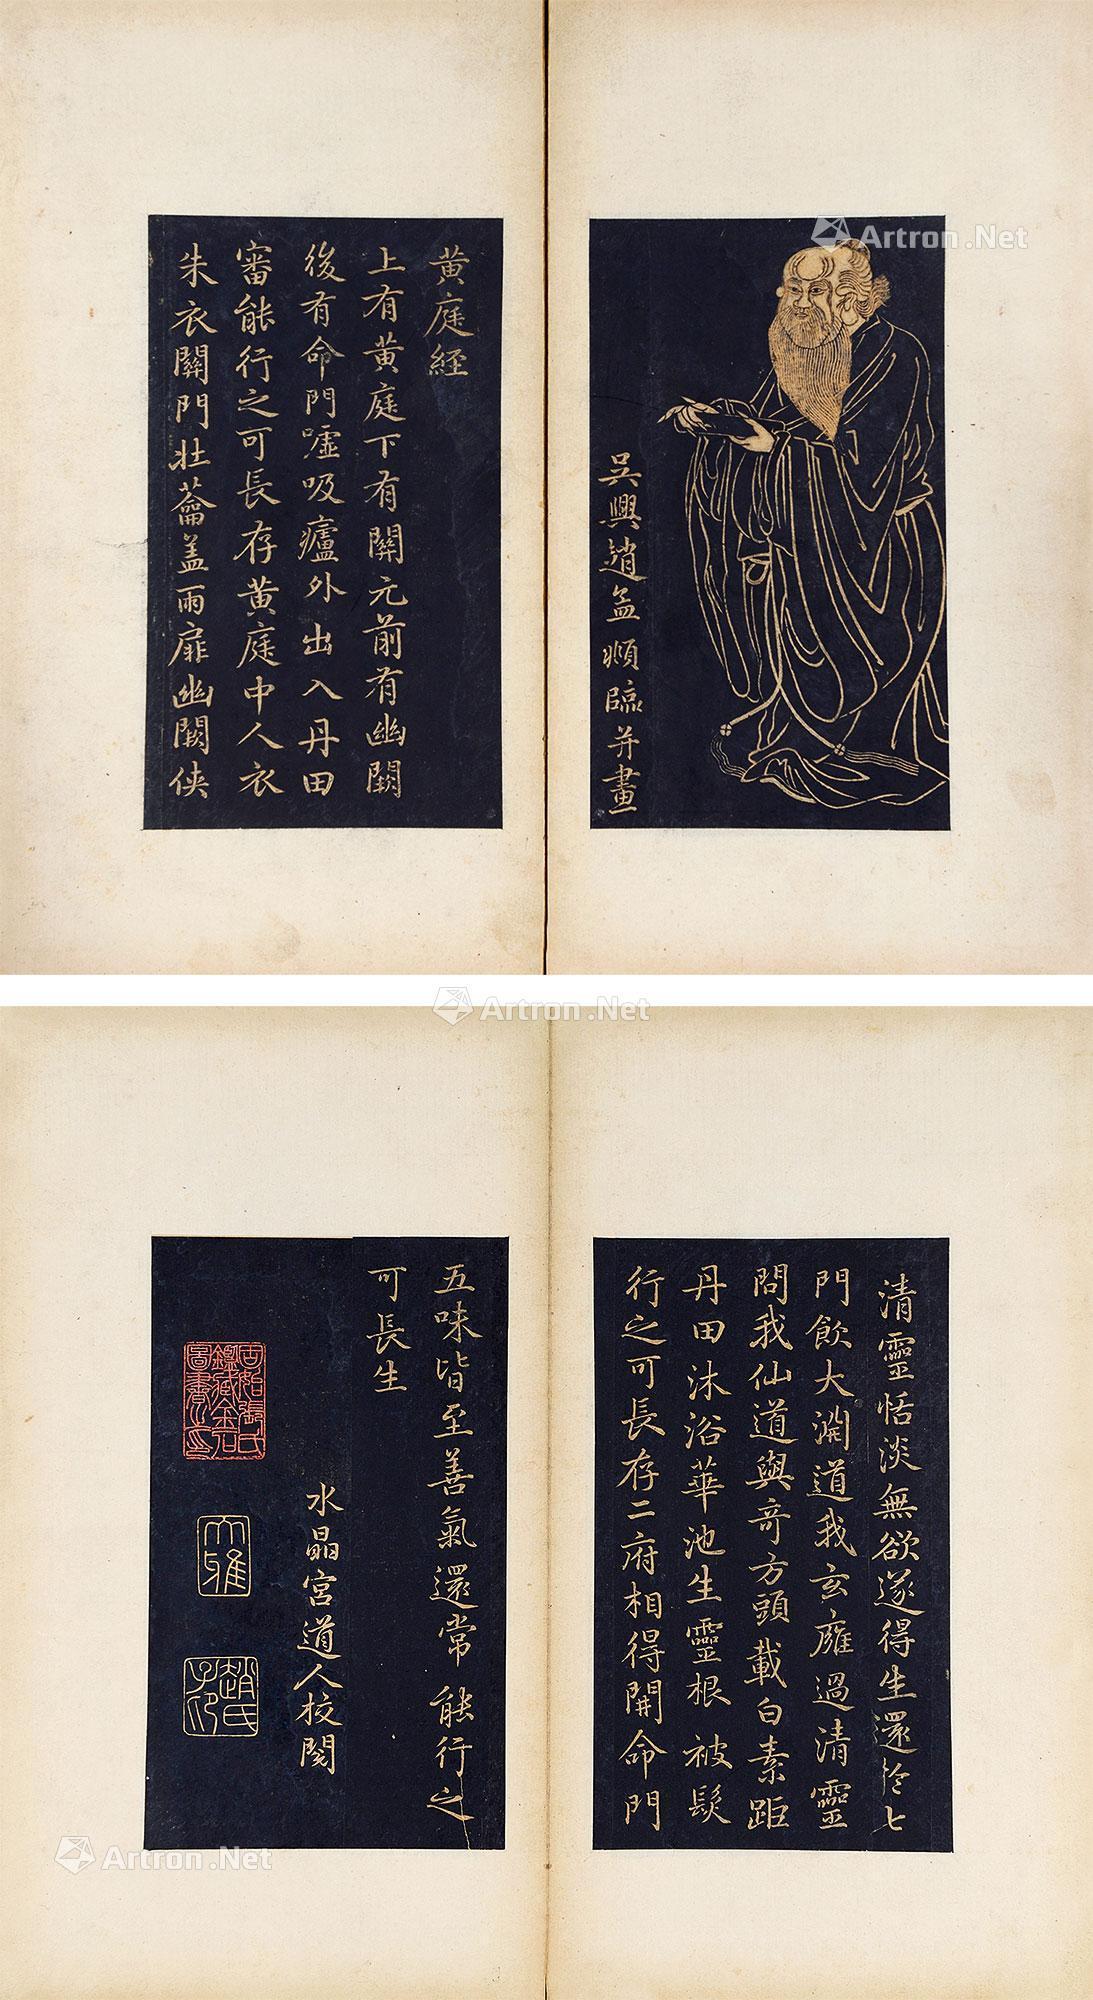 Artron.Net
吳興趙孟頫臨并畫
黃庭經
上有黃庭下有關元前有幽闕
後有命門噓吸廬外出入丹田
審能行之可長存黃庭中人衣
朱衣關門壯蘥盖兩扉幽闕俠
Artron.Net
清靈恬淡無欲遂得生還於七
門飲大淵道我玄廱過清靈
問我仙道與奇方頭載白素距
丹田沐浴華池生靈根被髮
行之可長存二府相得開命門
五味皆至善氣還常能行之
可長生
水晶宮道人校閱
大雅
趙氏子印
Artron.Net